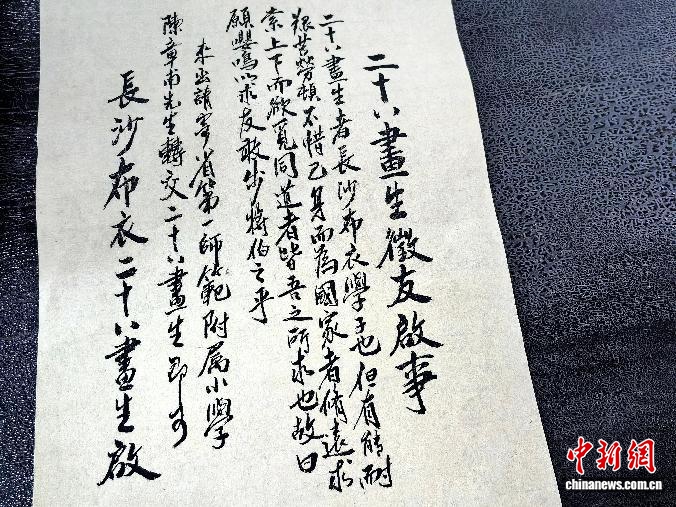 二十八畫生徵友啟事
二十八畫生者長沙布衣學子也但有能耐
艱苦勞頓不惜己身而為國家者脩遠求
索上下而欲覓同道者皆吾之所求也故曰
願嚶鳴以求友敢步將伯之乎
来函請寄省第一師範附属小學
陳章甫先生轉交二十八畫生即可
長沙布衣二十八畫生啟
中新網
chinanews.com.cn